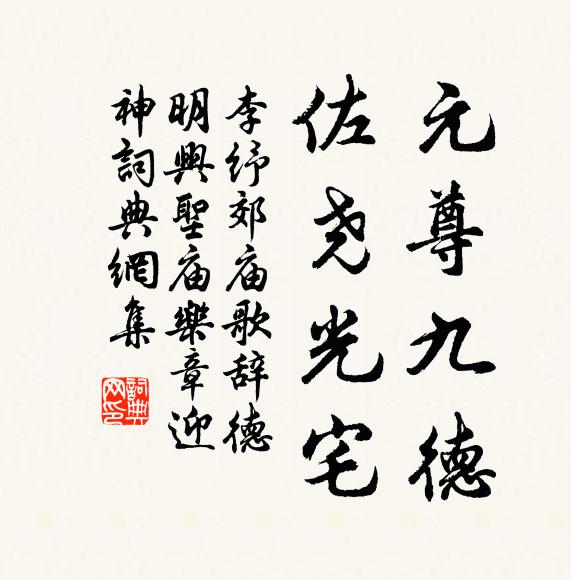 元尊九德
佐尧光宅
李纾郊庙歌辞德
明興聖庙樂章迎
神詞典網集
詞典
网印